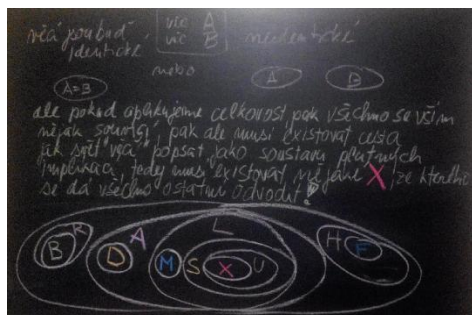 věci jsou buď věc A neidentické
identické věc B
nebo
A=B A B
ale pokud aplikujeme celkovost pak všechno se vším
nějak souvisí, pak ale musí existovat cesta
jak svět "věcí" popsat jako soustavu platných
implikací, tedy musí existovat nějaké X, ze kterého
se dá všechno ostatní odvodit?
B R D A M S L X U H F